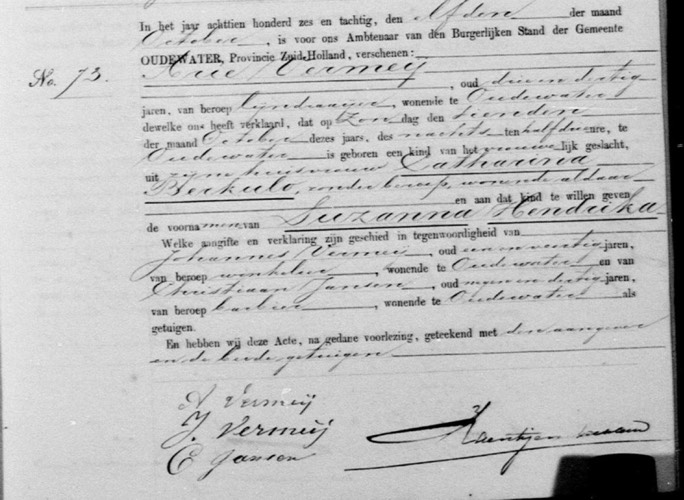 In het jaar achttien honderd zes en tachtig, den Elfden der maand
October, is voor ons Ambtenaar van den Burgerlijken Stand der Gemeente
OUDEWATER, Provincie Zuid-Holland, verschenen:
No. 73.
Arie Vermeij
, oud drie en dertig
jaren, van beroep lijndraaijer, wonende te Oudewater
dewelke ons heeft verklaard, dat op Zondag den tienden
der maand October dezes jaars, des nachts ten half drie ure, te
Oudewater is geboren een kind van het vrouwelijk geslacht,
uit zijne huisvrouw Catharina
Berkulo, zonder beroep, wonende aldaar
en aan dat kind te willen geven
de voornamen van Suzanna Hendrika
Welke aangifte en verklaring zijn geschied in tegenwoordigheid van
Johannes Vermeij, oud een en veertig jaren,
van beroep winkelier, wonende te Oudewater en van
Christiaan Jansen, oud negen en dertig jaren,
van beroep barbier, wonende te Oudewater als
getuigen.
En hebben wij deze Acte, na gedane voorlezing, geteekend met den aangever
en de beide getuigen
A Vermeij
J. Vermeij
C Jansen